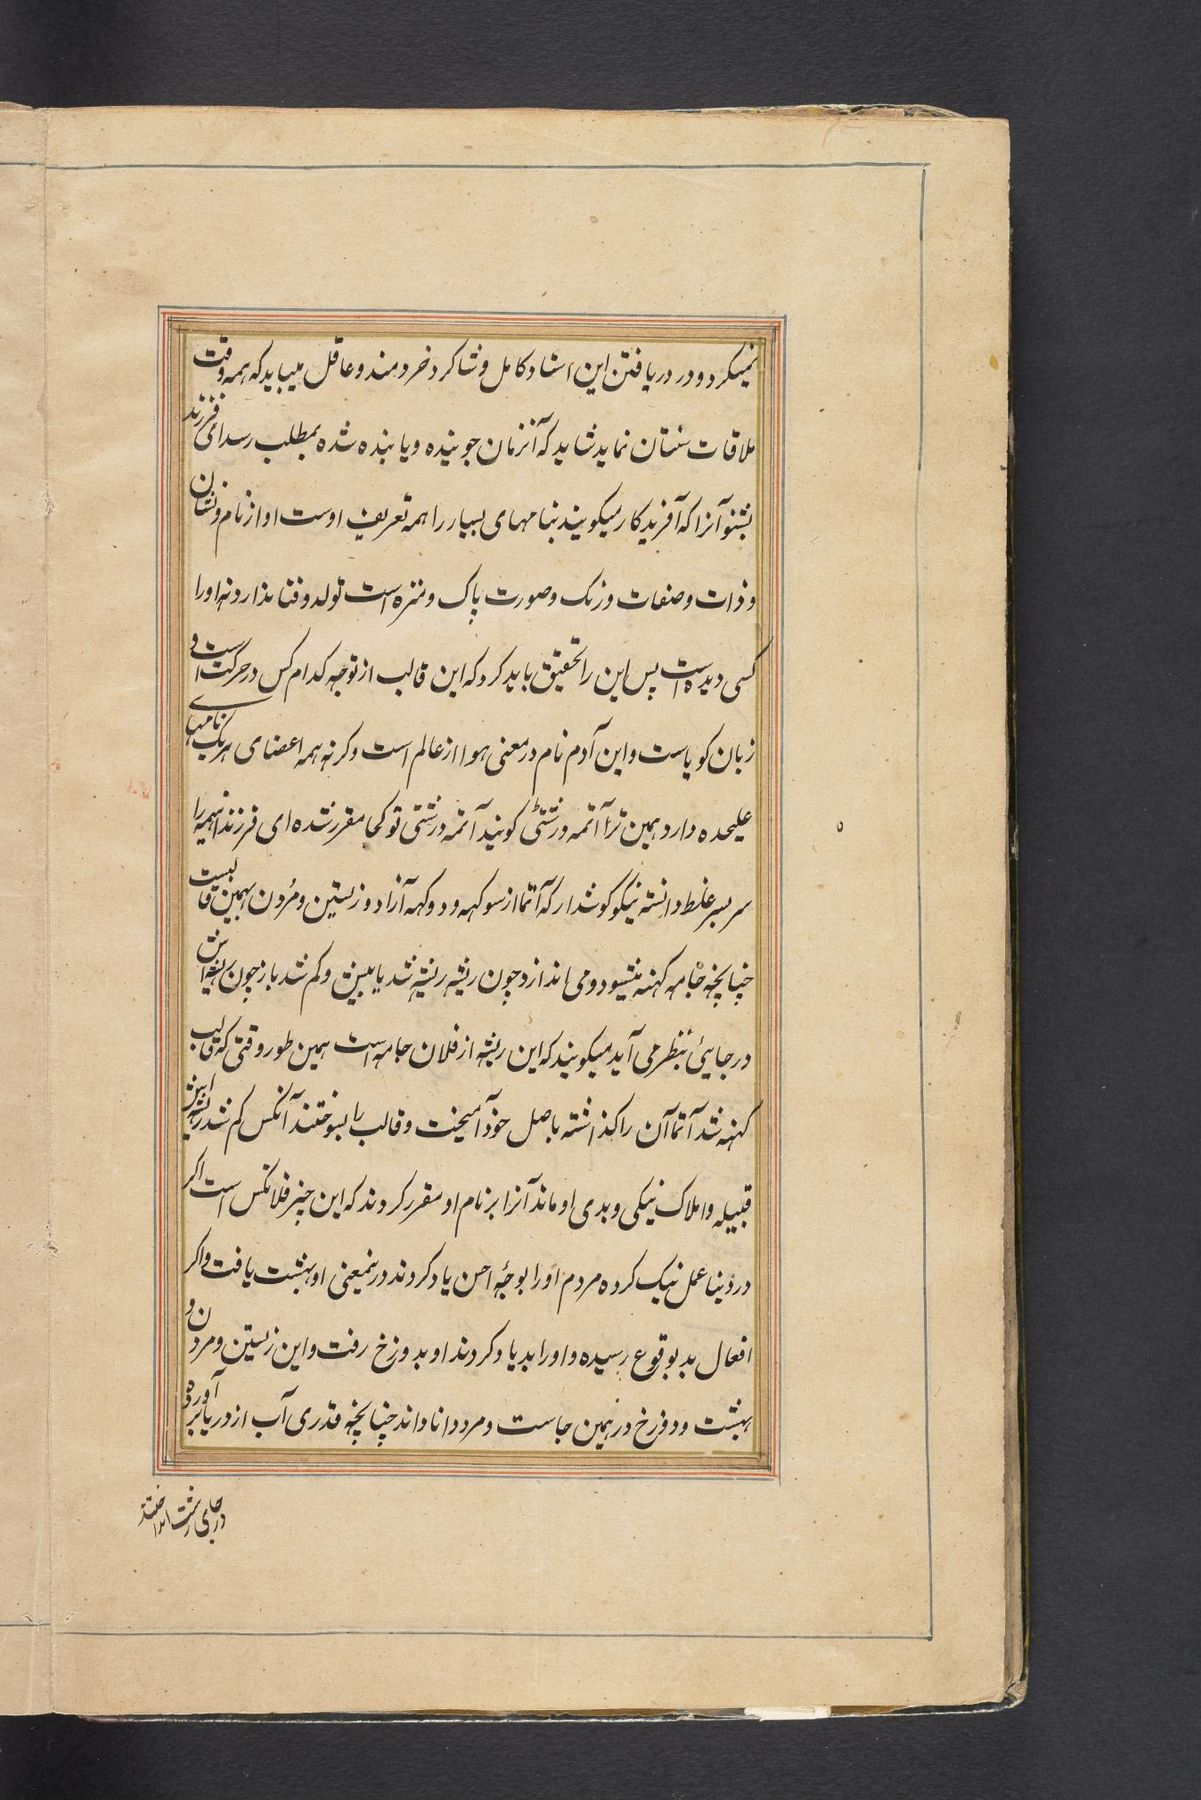 نمیکردد و در دریافتن این استاد کامل و شاکرد خردمند و عاقل میباید که همه وقت
ملاقات سنتان نماید شاید که آنزمان جوینده و یابنده شده بمطلب رسد ای فرزند
بشنو آنرا که آفریدکار میکویند بنامهای بسیار را همه تعریف اوست او از نام و نشان
و ذات و صفات و رنک و صورت پاک و منزه است تولد و فنا ندارد نه او را
کسی دیده است پس این را تحقیق باید کرد که این قالب از توجه کدام کس در حرکت است و
زبان کویاست و این آدم نام در معنی هوا از عالم است وکرنه همه اعضای هر یک نامهای
علیحده دارد همین ترا آتمه درشتی کویند آتمه درشتی تو کجا مقرر شده ای فرزند اینهمه را
سر بسر غلط دانسته نیکو کوشدار که آتما از سوکهه و دوکهه آزاد و زیستن و مُردن بهمین قالبیست
چنانچه جامه کهنه میشود و می اندازد چون ریشه ریشه شد یا ببین و کم شد باز چون ریشه اش
در جایئ بنظر می آید میکویند که این ریشه از فلان جامه است همین طور وقتی که قالب
کهنه شد آتما آن را کذاشته باصل خود آمیخت و قالب را بسوختند آنکس کم شد ریشه اش
قبیله و املاک نیکی و بدی او ماند آنرا بر نام او مقرر کردند که این چیز فلانکس است اکر
در دنیا عمل نیک کرده مردم او را بوجه احسن یاد کردند درینمعنی او بهشت یافت و اکر
افعال بد بوقوع رسیده و او را بد یاد کردند او بدوزخ رفت و این زیستن و مردن و
بهشت و دوزخ در همین جاست و مرد دانا داند چنانچه قدری آب از دریا بر آورده
در جای